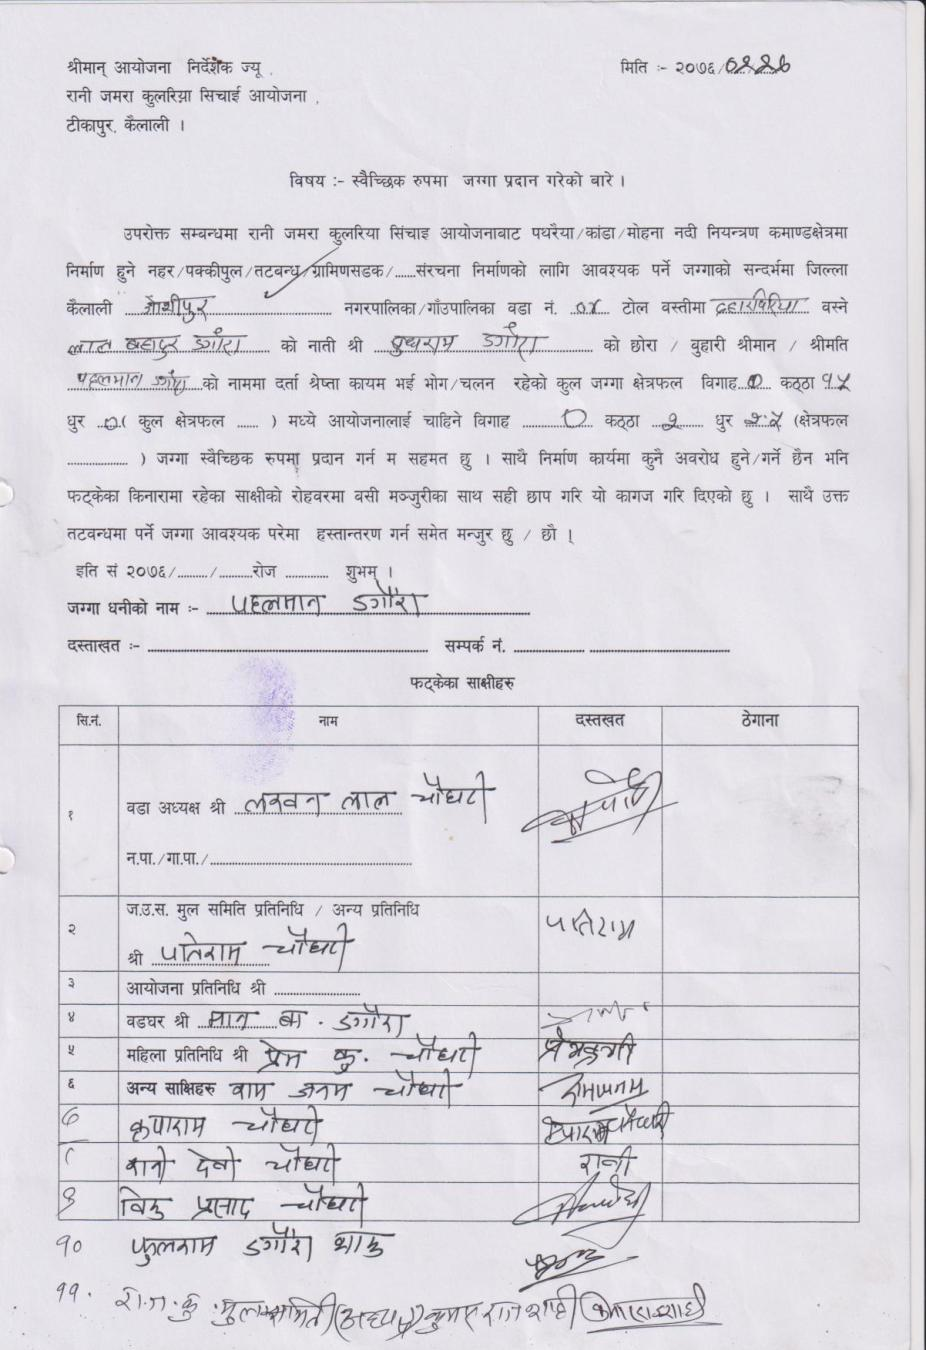 श्रीमान् आयोजना निर्देशक ज्यू ,
मिति :- २०७६/
रानी जमरा कुलरिया सिचाई आयोजना ,
टीकापुर, कैलाली ।
विषय :- स्वैच्छिक रुपमा जग्गा प्रदान गरेको बारे ।
उपरोक्त सम्बन्धमा रानी जमरा कुलरिया सिंचाइ आयोजनाबाट पथरैया/कांडा/मोहना नदी नियन्त्रण कमाण्डक्षेत्रमा
निर्माण हुने नहर/पक्कीपुल/तटबन्ध/ग्रामिणसडक/......संरचना निर्माणको लागि आवश्यक पर्ने जग्गाको सन्दर्भमा जिल्ला
कैलाली जोशीपुर नगरपालिका/गाँउपालिका वडा नं. टोल वस्तीमा वस्ने
लाल बहादुर डगौरा को नाती श्री बुधराम डगौरा को छोरा / बुहारी श्रीमान / श्रीमति
पहलमान डगौरा को नाममा दर्ता श्रेष्ता कायम भई भोग/चलन रहेको कुल जग्गा क्षेत्रफल विगाह 0 कठ्ठा १५
धुर कुल क्षेत्रफल ...... ) मध्ये आयोजनालाई चाहिने विगाह 0 कठ्ठा २ धुर (क्षेत्रफल
................ ) जग्गा स्वैच्छिक रुपमा प्रदान गर्न म सहमत छु । साथै निर्माण कार्यमा कुनै अवरोध हुने/गर्ने छैन भनि
फट्केका किनारामा रहेका साक्षीको रोहवरमा वसी मञ्जुरीका साथ सही छाप गरि यो कागज गरि दिएको छु । साथै उक्त
तटवन्धमा पर्ने जग्गा आवश्यक परेमा हस्तान्तरण गर्न समेत मन्जुर छु / छौ ।
इति सं २०७६/......../.........रोज ............ शुभम् ।
जग्गा धनीको नाम :- पहलमान डगौरा
दस्ताखत :- ........................ सम्पर्क नं. ........................
फट्केका साक्षीहरु
सि.नं. नाम दस्तखत ठेगाना
१ वडा अध्यक्ष श्री लखन लाल चौधरी
न.पा./गा.पा./........................
२ ज.उ.स. मुल समिति प्रतिनिधि / अन्य प्रतिनिधि
श्री पतिराम चौधरी पतिराम
३ आयोजना प्रतिनिधि श्री ........................
४ वडघर श्री मान ब. डगौरा
५ महिला प्रतिनिधि श्री प्रेम कु. चौधरी
६ अन्य साक्षिहरु राम जनम चौधरी
७ कृपाराम चौधरी
८ रानी देवी चौधरी रानी
९ प्रसाद चौधरी
१० फुलराम डगौरा थारु
११. रा.ज.कु. मुल समिती (अध्यक्ष)